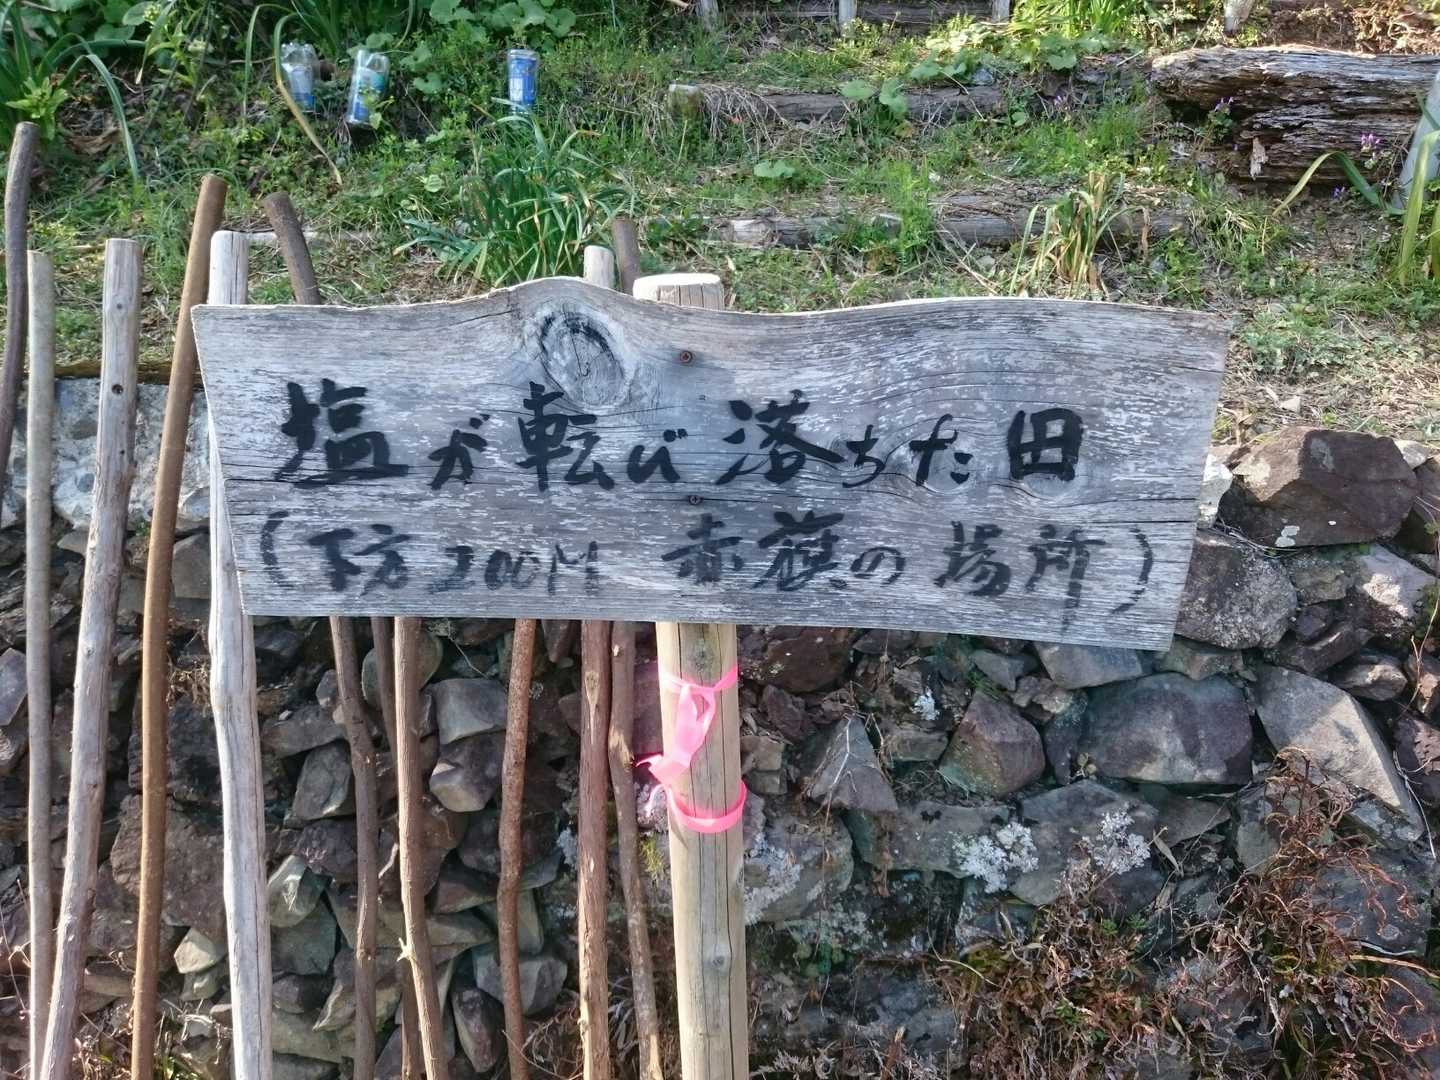 塩が転び落ちた田
(下方200M 赤旗の場所)